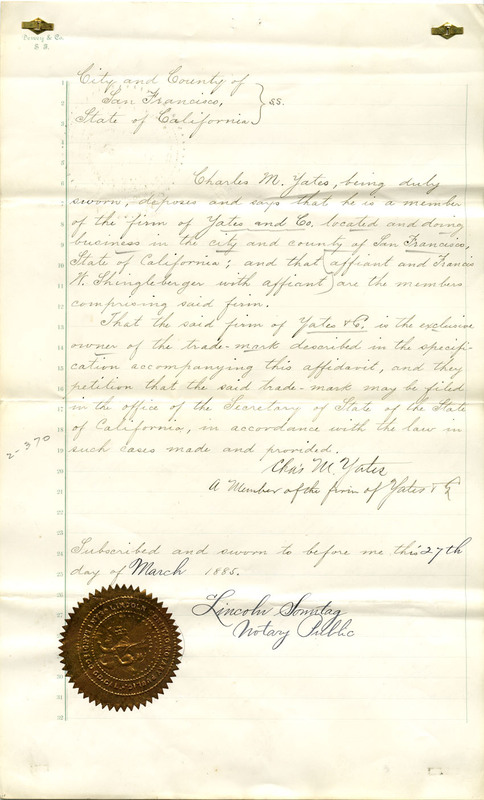 City and County of
San Francisco,
State of California } S.S.
Charles M. Yates, being duly
sworn, deposes and says that he is a member
of the firm of Yates and Co. located and doing
business in the city and county of San Francisco,
State of California; and that affiant and Francis
W. Shingleberger with affiant are the members
comprising said firm.
That the said firm of Yates & Co. is the exclusive
owner of the trade-mark described in the specifi-
cation accompanying this affidavit, and they
petition that the said trade-mark may be filed
in the office of the Secretary of State of the State
of California, in accordance with the law in
such cases made and provided.
2-370
Chas M. Yates
A Member of the firm of Yates & Co
Subscribed and sworn to before me this 27th
day of March 1885.
Lincoln Sonntag
Notary Public